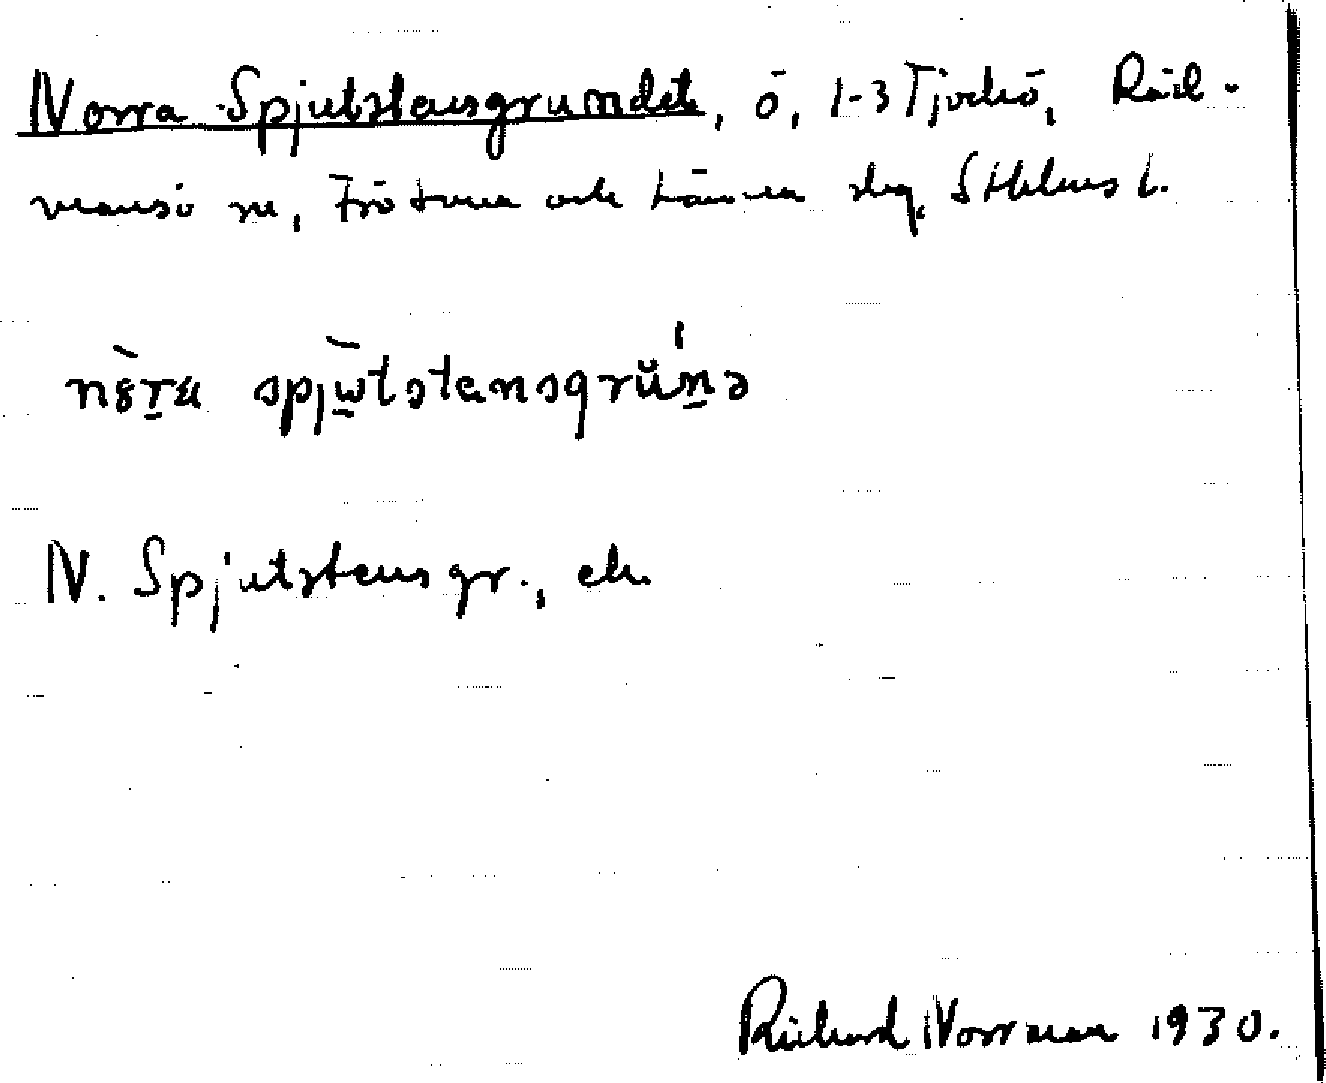 Norra Spjutstensgrundet, ö, 1-3 Tjockö, Råd-
mansö sn, Frötuna och Länna skg, Sthlms l.
spjw̲tstensgrŭn̲ə
N. Spjutstensgr., ek.
Richard Norrman 1930.